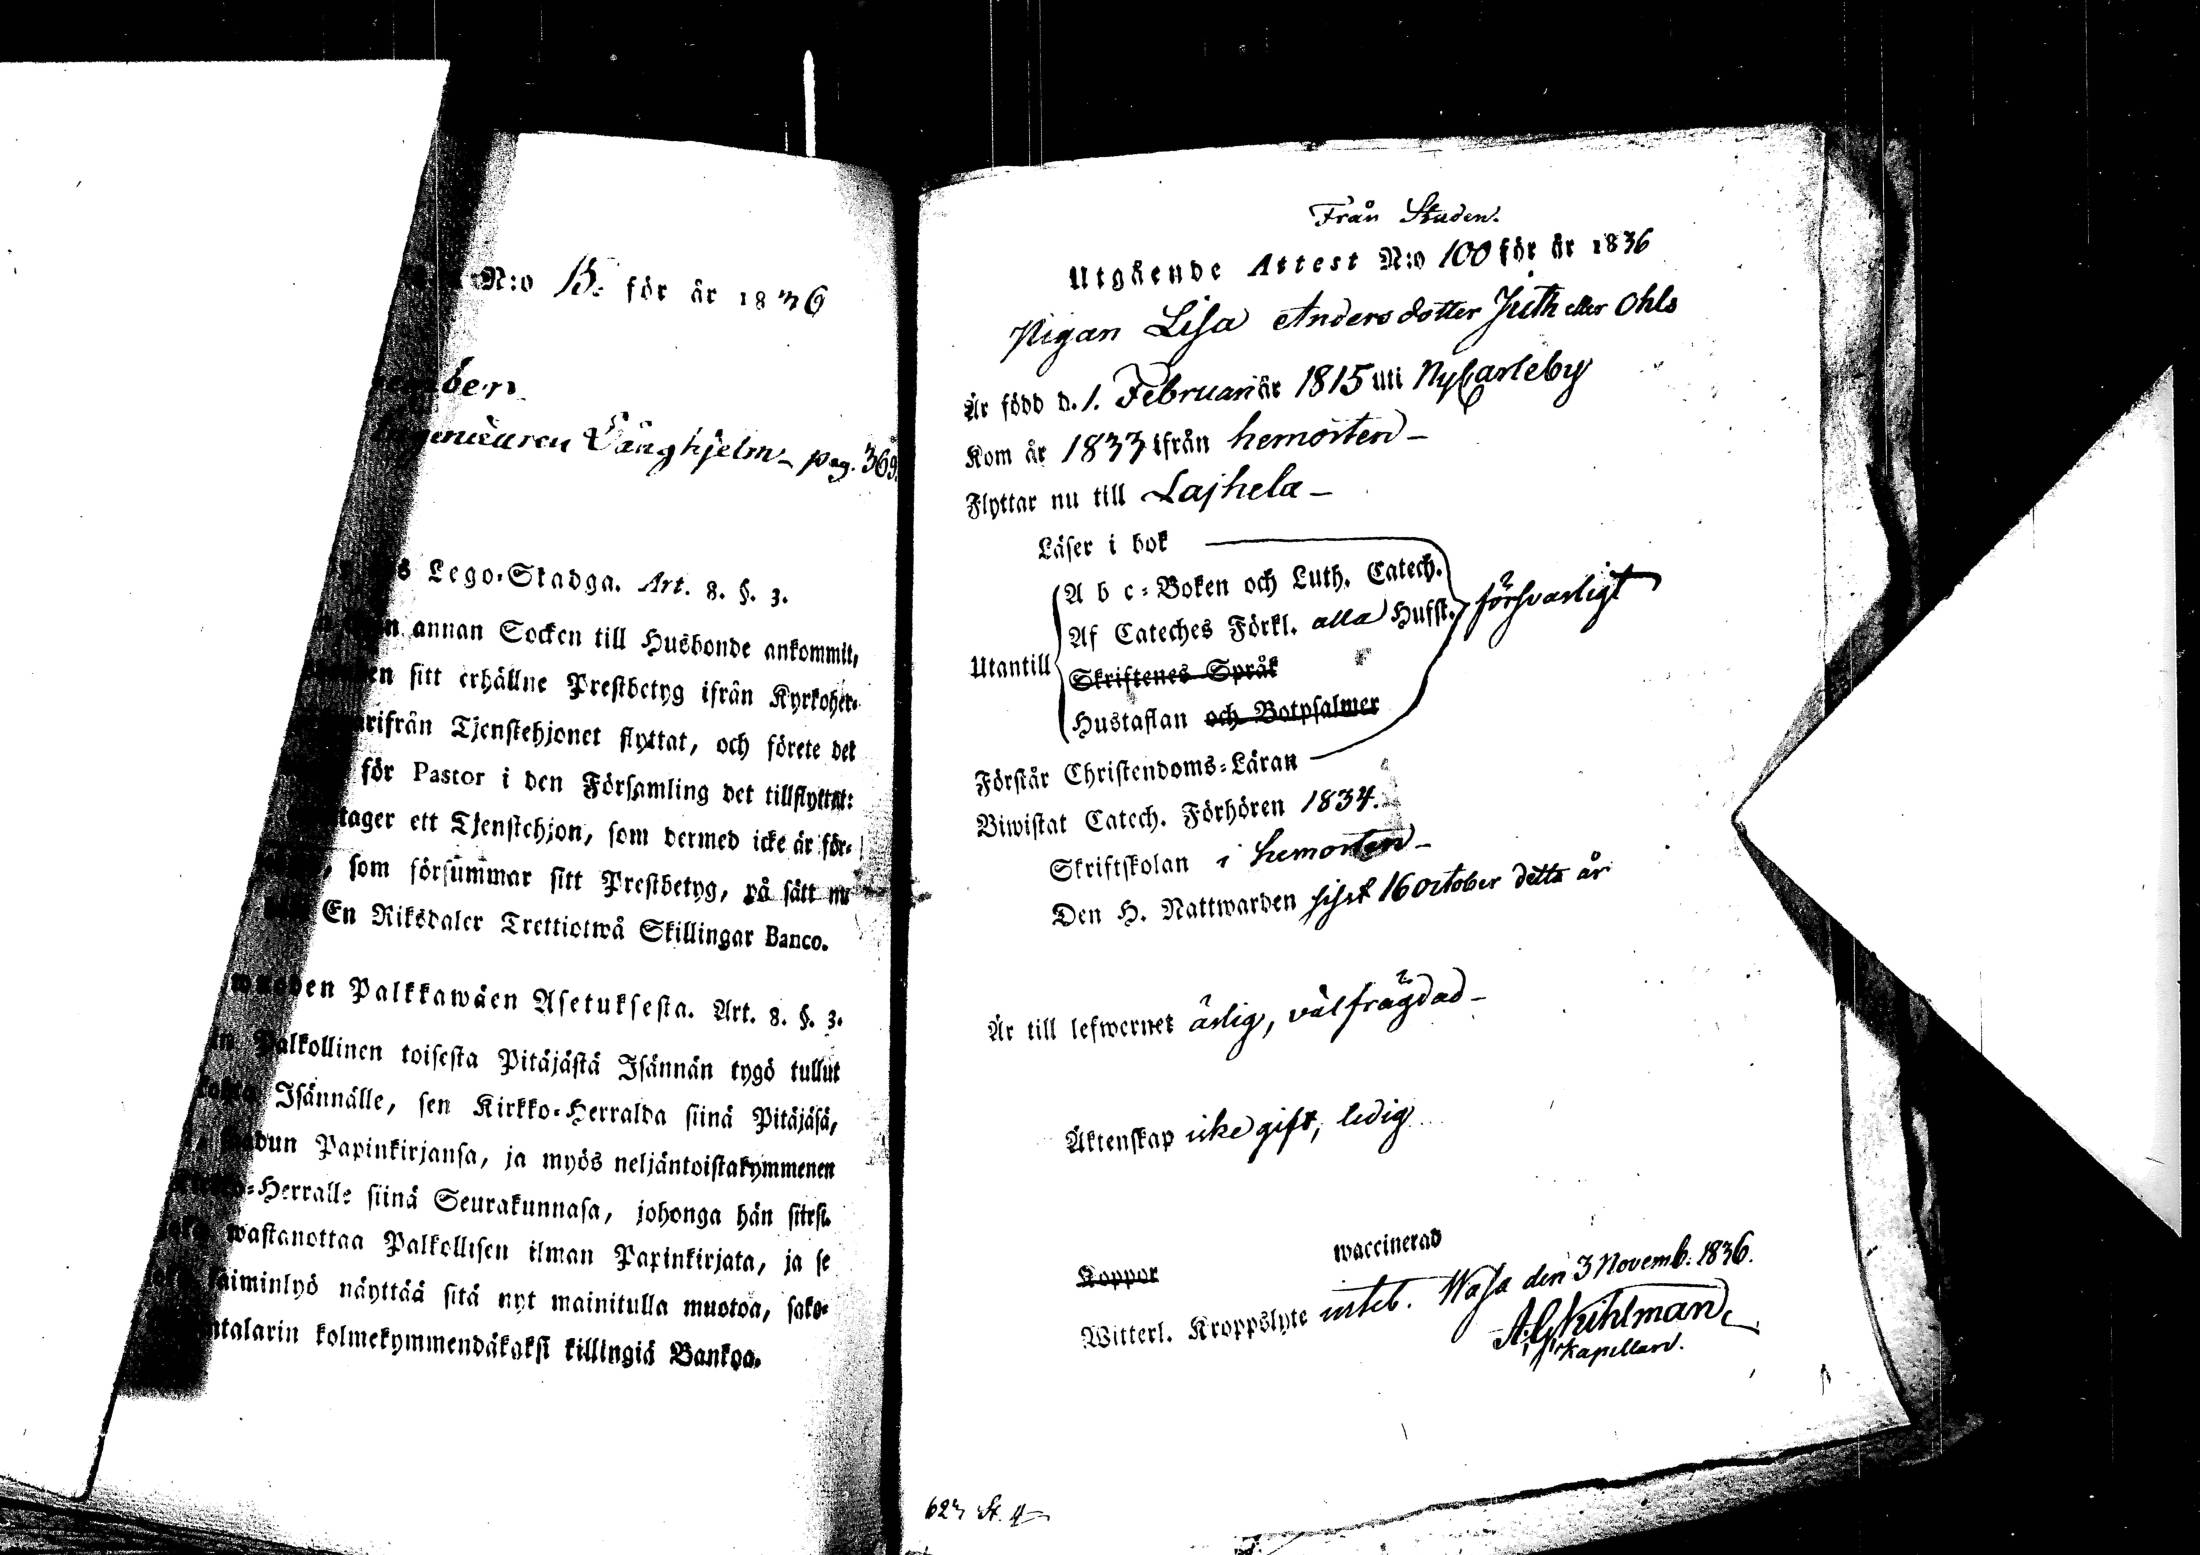 N:o 15. för år 1836
Långhjelm – pag. 369.
Lego-Stadga. Art. 8. §. 3.
annan Socken till Husbonde ankommit,
sitt erhållne Prestbetyg ifrån Kyrkoher-
rifrån Tjenstehjonet flyttat, och förete det
för Pastor i den Församling det tillflyttat:
tager ett Tjenstehjon, som dermed icke är för-
som försummar sitt Prestbetyg, på sätt nu
En Riksdaler Trettiotwå Skillingar Banco.
Palkkawäen Asetuksesta. Art. 8. §. 3.
Palkollinen toisesta Pitäjästä Isännän tygö tullut
Isännälle, sen Kirkko-Herralda siinä Pitäjäsä,
Papinkirjansa, ja myös neljäntoistakymmenen
-Herralle siinä Seurakunnasa, johonga hän siirsi.
wastanottaa Palkollisen ilman Papinkirjata, ja se
laiminlyö näyttää sitä nyt mainitulla muotoa, sako-
talarin kolmekymmendäkaksi killingiä Bankoa.
Från Staden.
Utgående Attest N:o 100 för år 1836
Pigan Lisa Andersdotter Juth eller Ohls
Är född d. 1. Februari år 1815 uti Nycarleby
Kom år 1833 ifrån hemorten –
Flyttar nu till Lajhela –
Läser i bok
A b c-Boken och Luth. Catech.
Af Cateches Förkl. alla Hufst. försvarligt
Utantill
Skriftenes Språk
Hustaflan och Botpsalmer
Förstår Christendoms-Läran
Biwistat Catech. Förhören 1834.
Skriftskolan i hemorten –
Den H. Nattwarden sist 16 october detta år
Är till lefwernet ärlig, välfrägdad –
Äktenskap icke gift, ledig
waccinerad
Koppor
Witterl. Kroppslyte Wasa den 3 Novemb: 1836.
A. G. Kihlman
Kapellan.